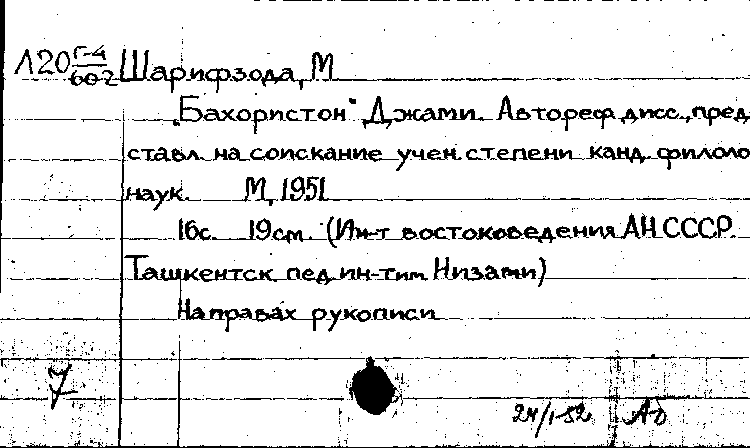 Л20 Г-4/602 Шарифзода, М
„Бахористон" Джами. Автореф. дисс., пред
ставл. на соискание учен. степени канд. филоло
наук. М, 1951
16с. 19см. (Ин-т востоковедения АН СССР.
Ташкентск. пед. ин-т им. Низами)
На правах рукописи
7
24/I-52 Аб